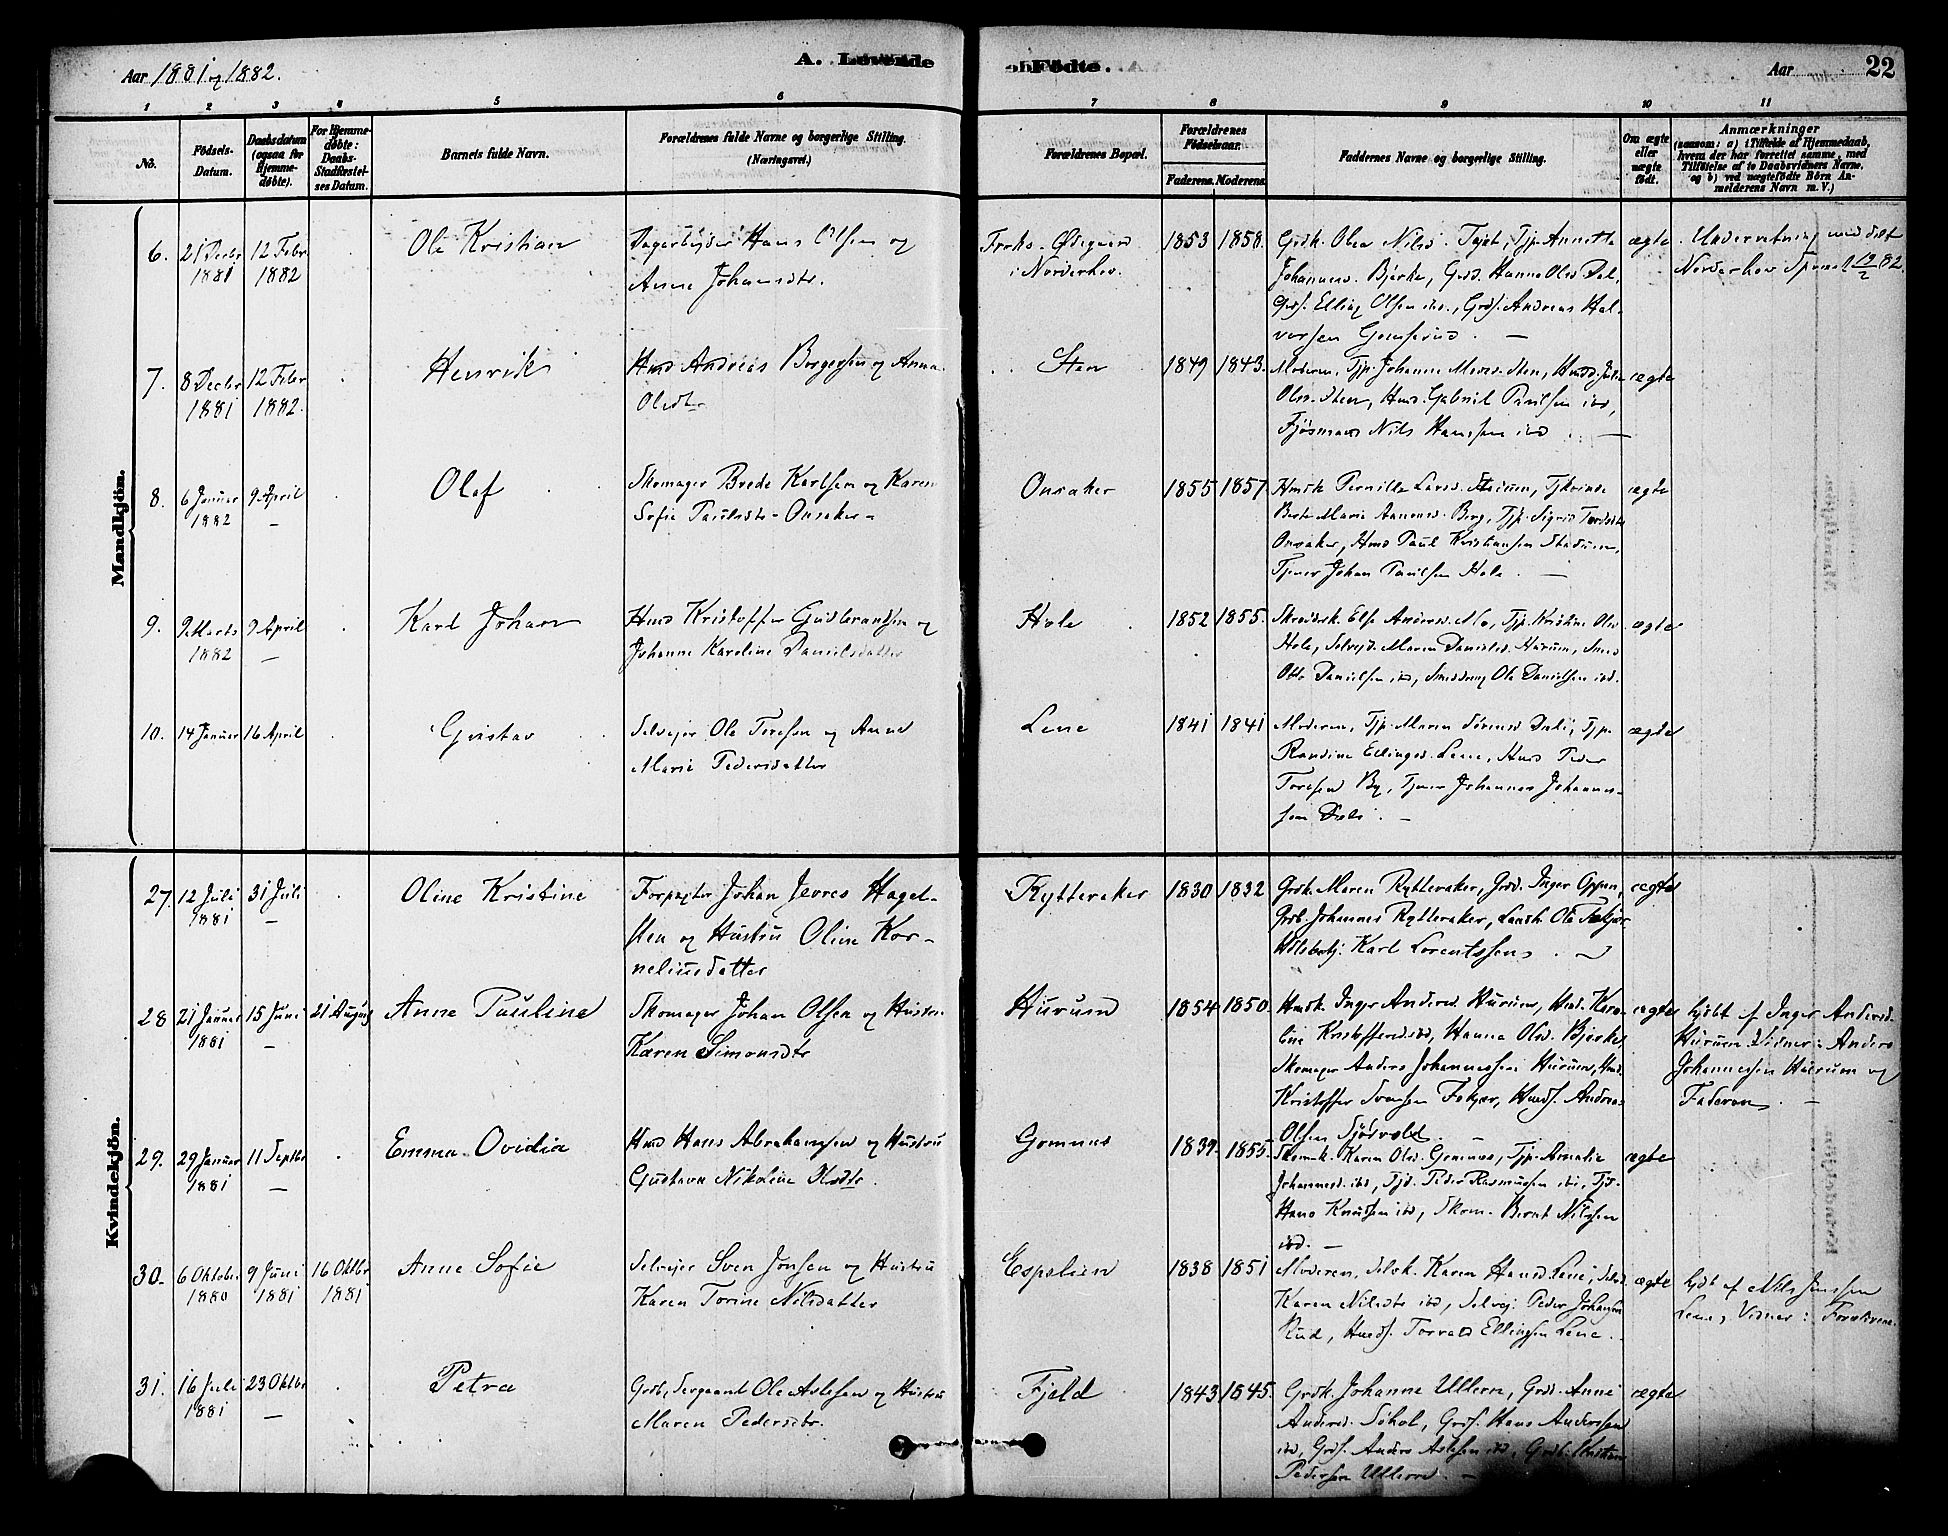 Aar 1881 og 1882.
A. Levende Fødte.
Aar 22
1 2 3 4 5 6 7 8 9 10 11
No.
Födsels-Datum.
Daabsdatum (ogsaa for Hjemme-døbte).
For Hjemme-døbte: Daabs-Stadfæstel-ses Datum.
Barnets fulde Navn.
Forældrenes fulde Navne og borgerlige Stilling. (Næringsvei.)
Forældrenes Bopæl.
Forældrenes Födselsaar.
Faderens. Moderens.
Faddernes Navne og borgerlige Stilling.
Om ægte eller uægte födt.
Anmærkninger
(saasom: a) i Tilfælde af Hjemmedaab,
hvem der har forrettet samme, med
Tilföielse af to Daabsvidners Navne,
og b) ved uægtefödte Börn An-
melderens Navn m. V.)
Mandkjön.
6. 21 Decbr 1881 12 Febr 1882 Ole Kristian
Dagarbejder Hans Olsen og
Anne Johansdtr.
i Norderhov.
1853 1858.
Grdk. Olea Nilsd. Tajet, Tjp. Annette
Johannesd. Bjerke, Grdd. Hanna Olsd. Dal,
Grds. Elling Olsen ibd., Grds. Andreas Hal-
vorsen Gomserud. —
ægte
Underretning meddelt
Norderhov Spræst 12/2 82.
7. 8 Decbr 1881 12 Febr 1882. Henrik
Hmd Andreas Borgersen og Anna
Olsdtr
Sten 1849 1843.
Moderen, Tjp. Johanne Sten, Hmdd. Julie
Olsd. Steen, Hmd. Gabriel Paulsen ibd,
Fjøsmand Nils Hanssen ibd. —
ægte
8. 6 Januar 1882 9 April — Olaf
Skomager Brede Karlsen og Karen
Sofie Paulsdtr - Onsaker -
Onsaker 1855 1857
Hmdk Pernille Larsd. Stadum, Tjkvinde
Berte Marie Aanensd. Berg, Tjp. Sigrid Tordsdtr
Onsaker, Hmd Paul Kristiansen Stadum,
Tjener Johan Paulsen Hole. —
ægte
9. 9 Marts 1882 9 April — Karl Johan
Hmd Kristoffer Gudbrandsen og
Johanne Karoline Danielsdatter
Hole 1852 1855.
Skrædsk. Else Andersd. Mo, Tjp. Kristine Olsd
Hole, Selvejd. Maren Danielsd. Hurum, Smed
Otto Danielsen ibd, Smeddreng Ole Danielsen ibd.
ægte
10. 14 Januar 16 April Gustav
Selvejer Ole Toresen og Anne
Marie Pedersdatter
Lene 1841 1841
Moderen, Tjp. Maren Sørensd. Dæli, Tjp.
Randine Ellingsd. Lene, Hmd Peder
Toresen By, Tjener Johannes Johannes-
sen Dæli. —
ægte
Kvindekjön.
27. 12 Juli 1881 31 Juli — Oline Kristine
Forpagter Johan Jevres Hagel-
sten og Hustru Oline Kor-
neliusdatter
Rytteraker 1830 1832
Grdk. Maren Rytteraker, Grdd. Inger Oppen,
Grdb. Johannes Rytteraker, Landh. Ole Fekjær
Karl Lorentssen. —
ægte
28 21 Januar 1881 15 Juni — 21 August Anne Pauline
Skomager Johan Olsen og Hustru
Karen Simonsdtr
Hurum 1854 1850.
Hmdk. Inger Andersd. Hurum, Hmd. Karo-
line Kristoffersd. ibd, Hanna Olsd. Bjerke,
Skomager Anders Johannessen Hurum, Hmd.
Kristoffer Svensen Fekjær, Hmds. Andreas
Olsen Sjøvold. —
ægte
hjdbt af Inger Andersd.
Hurum. Vidner: Anders
Johannessen Hurum og
Faderen. —
29. 29 Januar 1881 11 Septbr — Emma Ovidia
Hmd Hans Abrahamsen og Hustru
Gustava Nikoline Olsdtr.
Gomnes 1839. 1855.
Skomk. Karen Olsd. Gomnes, Tjp. Amalie
Johannesd. ibd, Tjd. Peder Rasmussen ibd, Tjd.
Hans Knudsen ibd, Skom. Bernt Nilssen
ibd. —
ægte
30. 6 Oktober 1880 9 Juni 1881 16 Oktbr 1881 Anne Sofie
Selvejer Sven Jonsen og Hustru
Karen Torine Nilsdatter
Espelien 1838 1851
Moderen, Selvk. Karen Hansd. Lene, Selvd.
Karen Nilsdtr ibd, Selvej. Peder Johansen
Rud, Hmds. Torvald Ellingsen Lene.
ægte
hjdbt af Nils Jonssen
Lene, Vidner: Forældrene.
31. 16 Juli 1881 23 Oktbr — Petra
Grdb, Sergeant Ole Aslesen og Hustru
Maren Pedersdtr.
Fjeld 1843 1845.
Grdk. Johanne Ullern, Grdd. Anne
Andersd. Søhol, Grds. Hans Anderssen
ibd, Grds. Anders Aslesen ibd, Grdb. Kristian
Pedersen Ullern. —
ægte